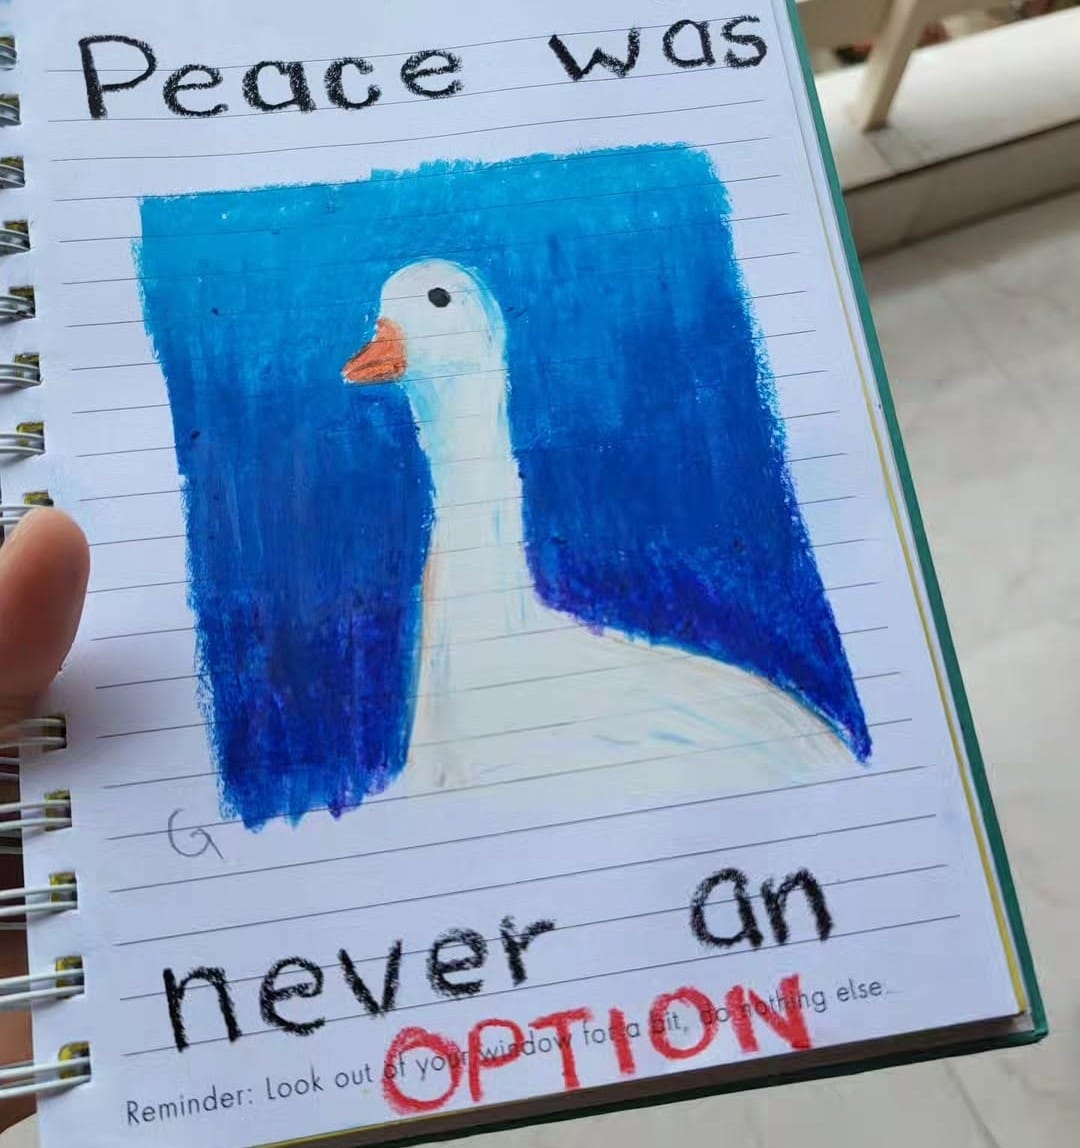 Peace was
G
never an
OPTION
Reminder: Look out of your window for a bit, do nothing else...